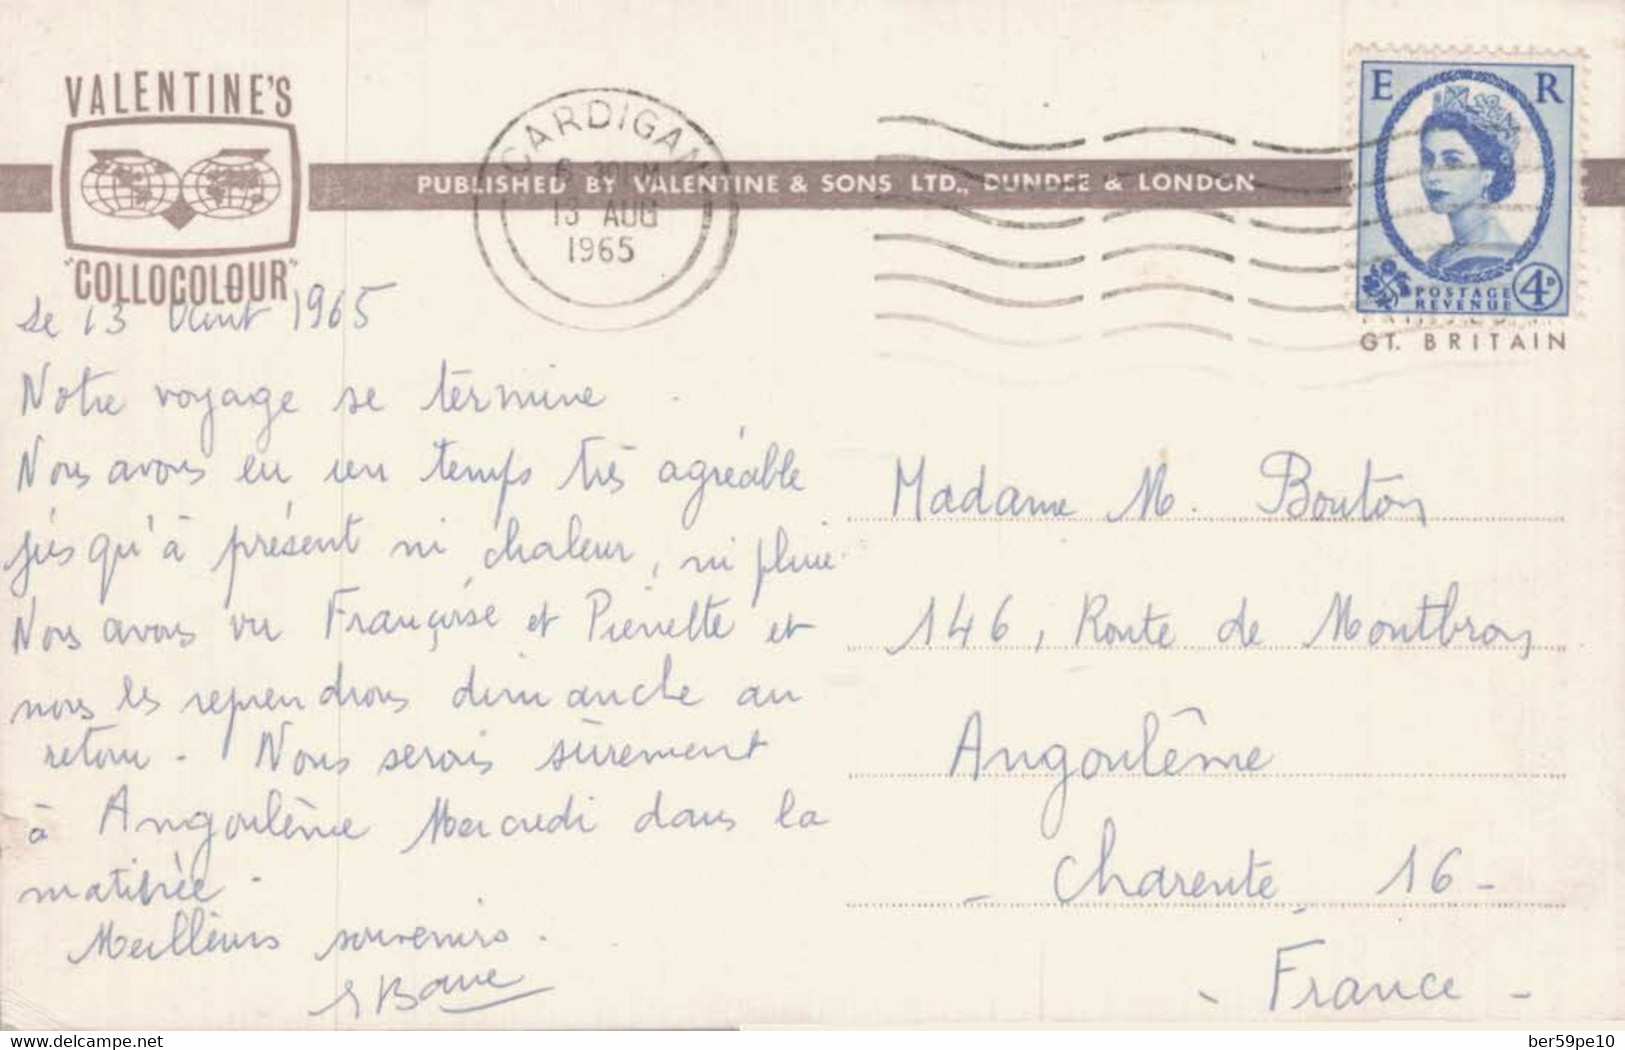 VALENTINE'S
"COLLOCOLOUR"
PUBLISHED BY VALENTINE & SONS LTD., DUNDEE & LONDON
CARDIGAN
6 30PM
13 AUG
1965
E R
POSTAGE
REVENUE
4D
GT. BRITAIN
Le 13 Août 1965
Notre voyage se termine.
Nous avons eu un temps très agréable
jusqu'à présent ni chaleur, ni pluie.
Nous avons vu Françoise et Pierrette et
nous les reprendrons dimanche au
retour - Nous serons sûrement
à Angoulême Mercredi dans la
matinée.
Meilleurs souvenirs.
Madame M. Bouton
146, Route de Montbron
Angoulême
- Charente 16 -
- France -
delcampe.net
ber59pe10